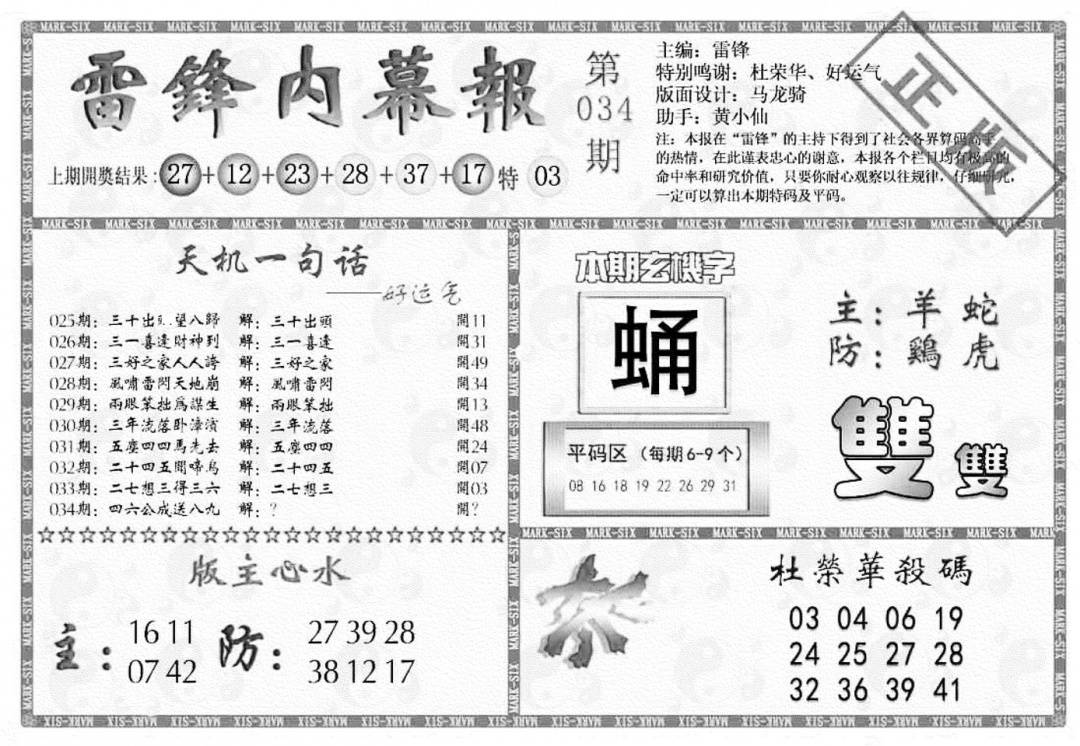 雷鋒内幕報
第034期
上期開獎结果：27+12+23+28+37+17特03
主编：雷锋
特别鸣谢：杜荣华、好运气
版面设计：马龙骑
助手：黄小仙
注：本报在“雷锋”的主持下得到了社会各界算码高手
的热情，在此谨表忠心的谢意，本报各个栏目均有极高的
命中率和研究价值，只要你耐心观察以往规律，仔细研究，
一定可以算出本期特码及平码。
正版
天机一句话
——好运气
025期：三十出 望八歸 解：三十出頭 開11
026期：三一喜逢財神到 解：三一喜逢 開31
027期：三好之家人人誇 解：三好之家 開49
028期：風嘯雷閃天地崩 解：風嘯雷閃 開34
029期：兩眼笨拙為謀生 解：兩眼笨拙 開13
030期：三年流落卧漳濱 解：三年流落 開48
031期：五塵四四馬先去 解：五塵四四 開24
032期：二十四五聞啼鳥 解：二十四五 開07
033期：二七想三得三六 解：二七想三 開03
034期：四六公成送八九 解：? 開?
☆☆☆☆☆☆☆☆☆☆☆☆☆☆☆☆☆☆☆☆☆☆
本期玄機字
蛹
主：羊 蛇
防：鷄 虎
雙 雙
平码区（每期6-9个）
08 16 18 19 22 26 29 31
版主心水
主：
16 11
07 42
防：
27 39 28
38 12 17
杀
杜榮華殺碼
03 04 06 19
24 25 27 28
32 36 39 41
MARK-SIX